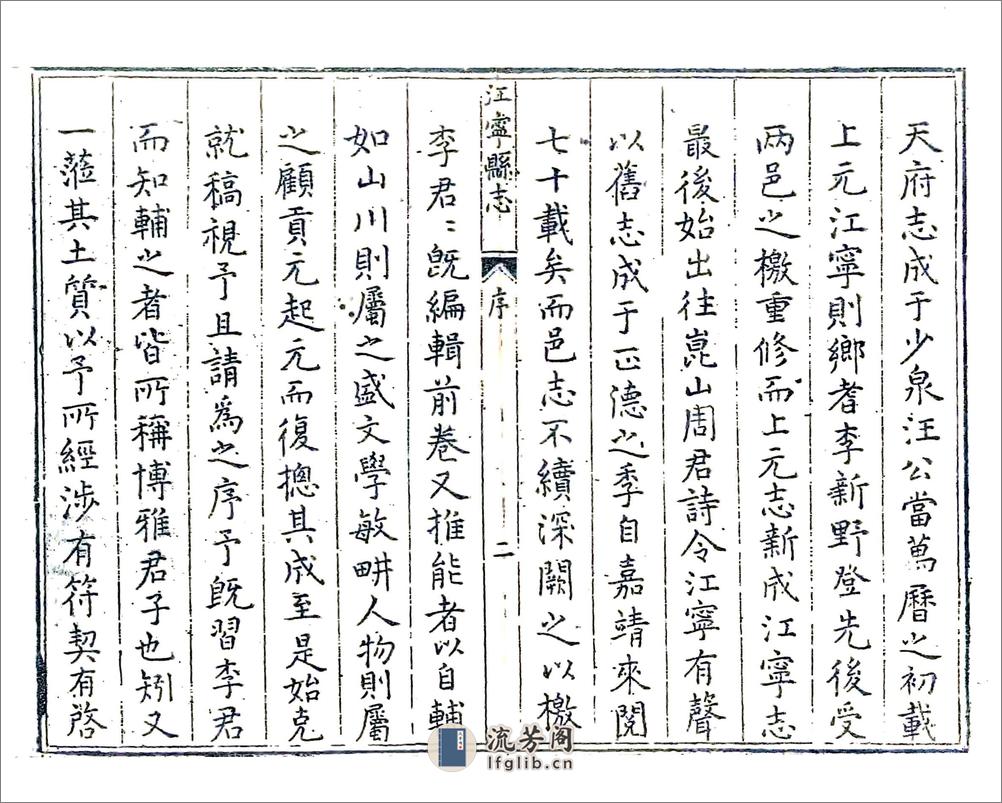 天府志成于少泉汪公當萬曆之初載
上元江寧則鄉耆李新野登先後受
两邑之檄重修而上元志新成江寧志
最後始出往崑山周君詩令江寧有聲
以舊志成于正德之季自嘉靖來閱
七十載矣而邑志不續深闕之以檄
江寧縣志
序
二
李君〻旣編輯前卷又推能者以自輔
如山川則屬之盛文學敏畊人物則屬
之顧貢元起元而復摠其成至是始克
就稿視予且請爲之序予旣習李君
而知輔之者皆所稱博雅君子也矧又
一蒞其土質以予所經涉有符契有啓
流芳阁
lfglib.cn